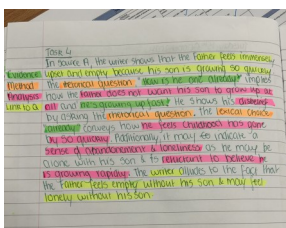 Task 4
In Source A, the writer shows that the Father feels immensely
Evidence upset and empty because his son is growing so quickly
Method The rhetorical question "How is he one already" implies
Analysis how the father does not want his son to grow up at
Link to Q all and he's growing up fast? He shows his disbelief
by asking the rhetorical question. The lexical choice
'already' conveys how he feels childhood has gone
by so quickly. Additionally, it may to indicate a
sense of abandonement & loneliness as he may be
alone with his son & is reluctant to believe he
is growing rapidly. The writer alludes to the fact that
the father feels empty without his son & may feel
lonely without his son.